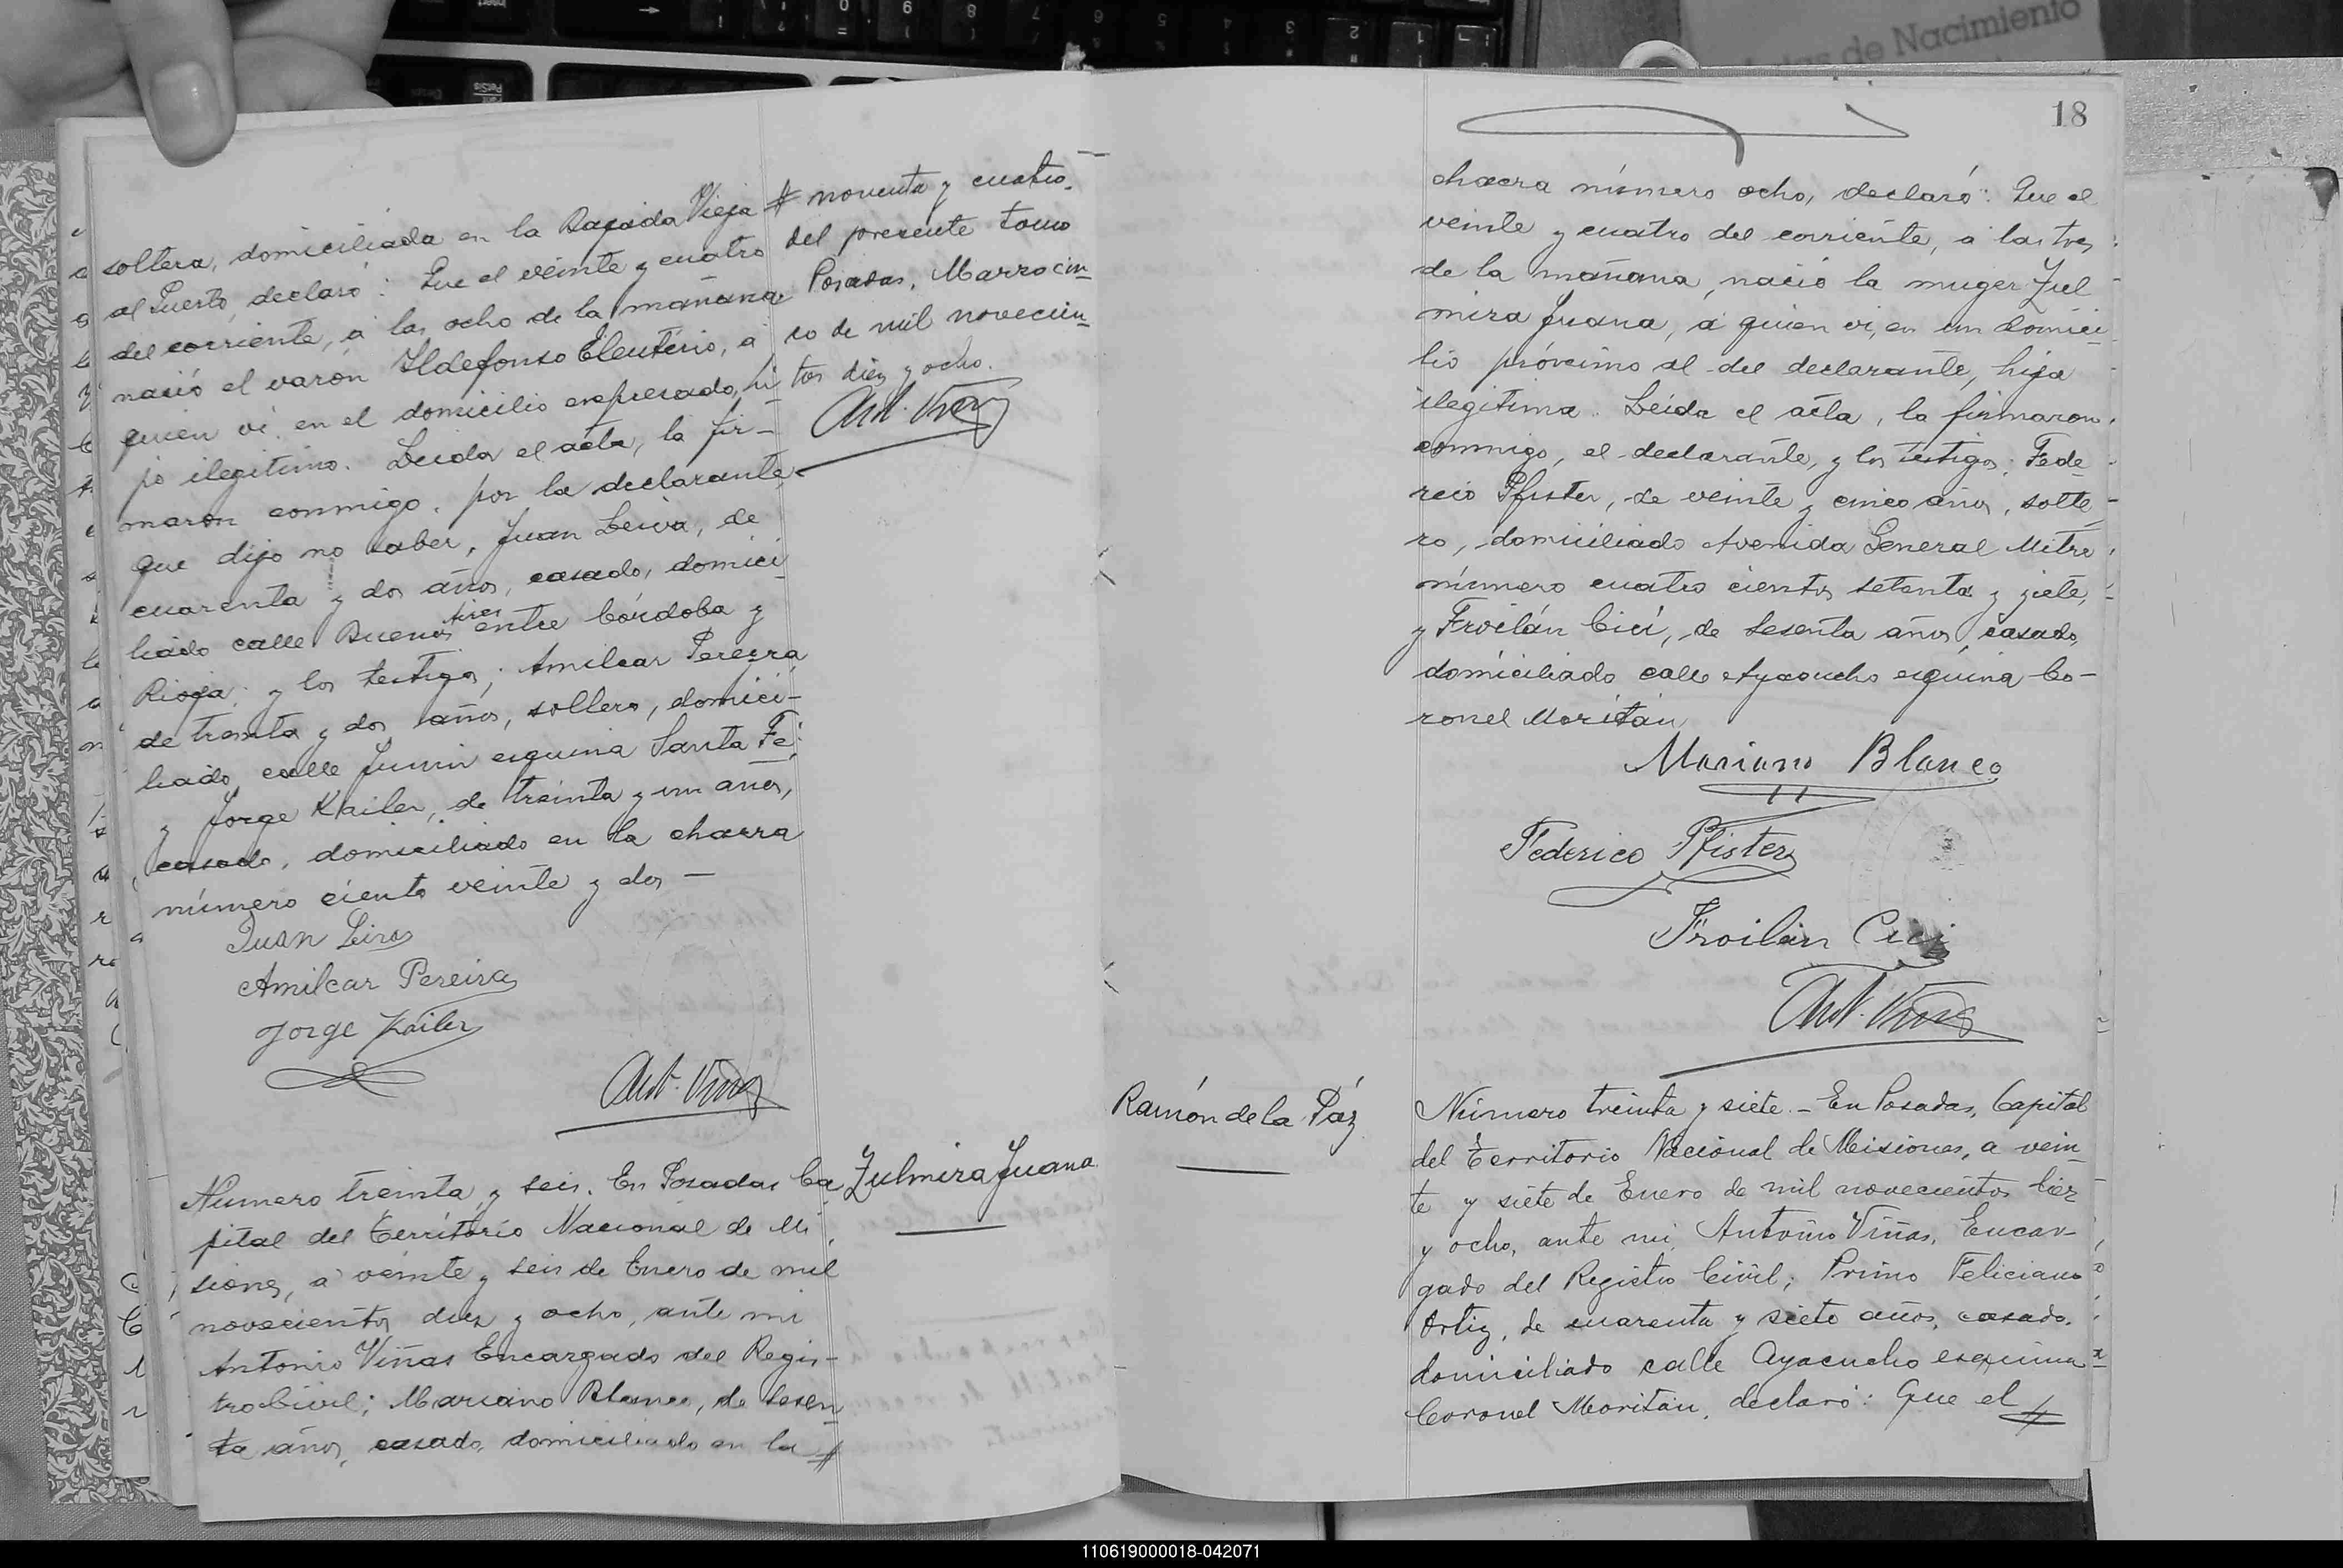 de Nacimiento
soltera, domiciliada en la Bajada Vieja
al Puerto, declaró: Que el veinte y cuatro
del corriente, á las ocho de la mañana
nació el varón Ildefonso Eleutério, á
quien ví en el domicilio expresado, hi
jo ilegitimo. Leida el acta, la fir-
maron conmigo, por la declarante
que dijo no saber, Juan Leiva, de
cuarenta y dos años, casado, domici
liado calle Buenos Aires entre Córdoba y
Rioja; y los testigos; Amilcar Pereyra
de treinta y dos años, soltero, domici-
liado calle Junin esquina Santa Fé;
y Jorge Kailer, de treinta y un años,
casado, domiciliado en la chacra
número ciento veinte y dos —
Juan Leiva
Amilcar Pereira
Jorge Kailer
Ant. Viñas
# noventa y cuatro.
del presente tomo
Posadas, Marzo cin
co de mil novecien
tos diez y ocho.
Ant. Viñas
Zulmira Juana
Número treinta y seis. En Posadas Ca
pital del Território Nacional de Mi
siones, á veinte y seis de Enero de mil
novecientos diez y ocho, ante mi
Antonio Viñas Encargado del Regis-
tro Civil; Mariano Blanco, de sesen
ta años, casado, domiciliado en la #
18
chacra número ocho, declaró: Que el
veinte y cuatro del corriente, á las tres
de la mañana, nació la muger Zul
mira Juana, á quien ví, en un domici
lio próximo al del declarante, hija
ilegitima. Leida el acta, la firmaron
conmigo, el declarante, y los testigos; Fede
rico Pfister, de veinte y cinco años, solte
ro, domiciliado Avenida General Mitre
número cuatro cientos setenta y siete,
y Froilán Cici, de sesenta años, casado,
domiciliado calle Ayacucho esquina Co-
ronel Moritán
Mariano Blanco
Federico Pfister
Froilán Cici
Ant. Viñas
Ramón de la Páz
Número treinta y siete. - En Posadas, Capital
del Territorio Nacional de Misiones, a vein
te y siete de Enero de mil novecientos diez
y ocho, ante mi, Antonio Viñas, Encar-
gado del Registro Civil; Primo Feliciano
Ortiz, de cuarenta y siete años, casado,
domiciliado calle Ayacucho esquina
Coronel Moritán, declaró: Que el #
110619000018-042071